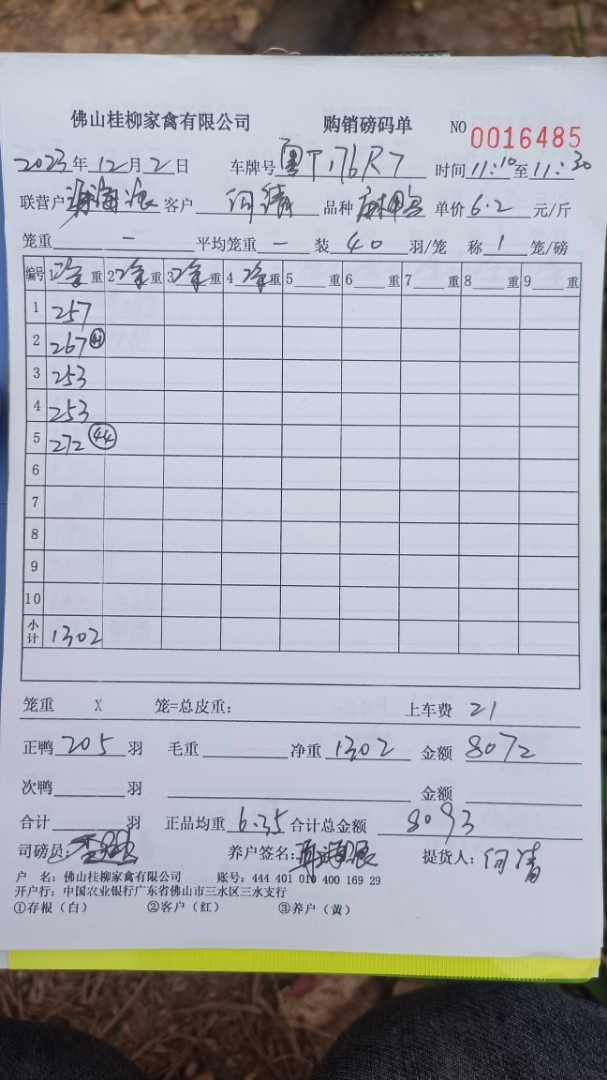 佛山桂柳家禽有限公司 购销磅码单 NO 0016485
2023年12月2日 车牌号 粤T176R7 时间11:10至11:30
联营户 客户 何清 品种 单价6.2元/斤
笼重 — 平均笼重 — 装 40 羽/笼 称 1 笼/磅
编号 1净重 2净重 3净重 4净重 5 重 6 重 7 重 8 重 9 重
1 257
2 267
3 253
4 253
5 272 44
6
7
8
9
10
小计 1302
笼重 X 笼=总皮重: 上车费 21
正鸭 205 羽 毛重 净重 1302 金额 8072
次鸭 羽 金额
合计 羽 正品均重 6.35 合计总金额 8093
司磅员: 养户签名: 提货人: 何清
户 名: 佛山桂柳家禽有限公司 账号: 444 401 010 400 169 29
开户行: 中国农业银行广东省佛山市三水区三水支行
①存根(白) ②客户(红) ③养户(黄)